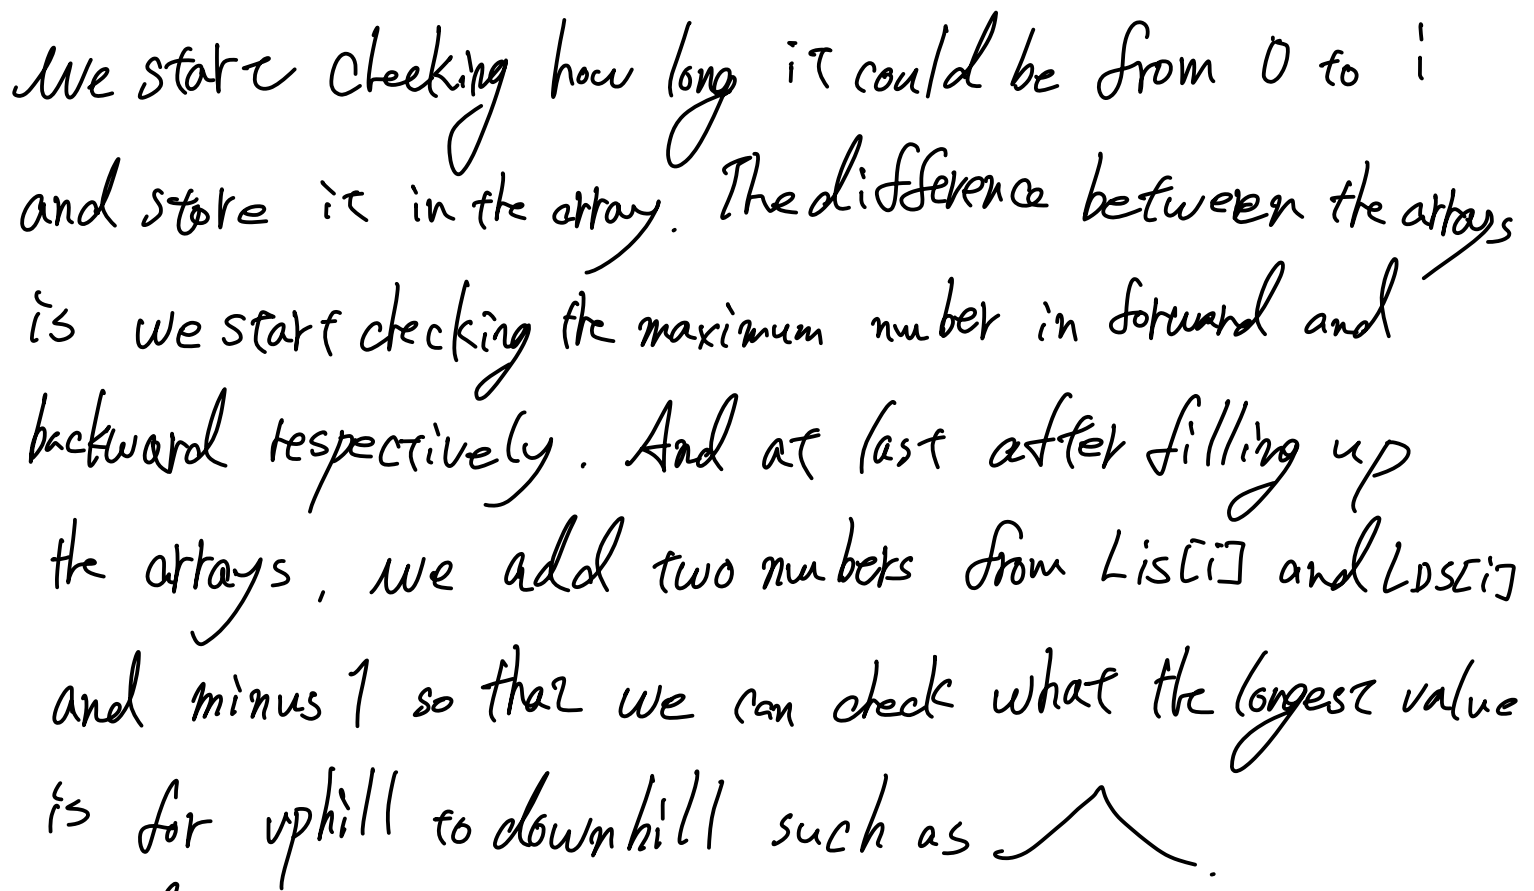 We start checking how long it could be from 0 to i
and store it in the array. The difference between the arrays
is we start checking the maximum number in forward and
backward respectively. And at last after filling up
the arrays, we add two numbers from Lis[i] and LDS[i]
and minus 1 so that we can check what the longest value
is for uphill to downhill such as .